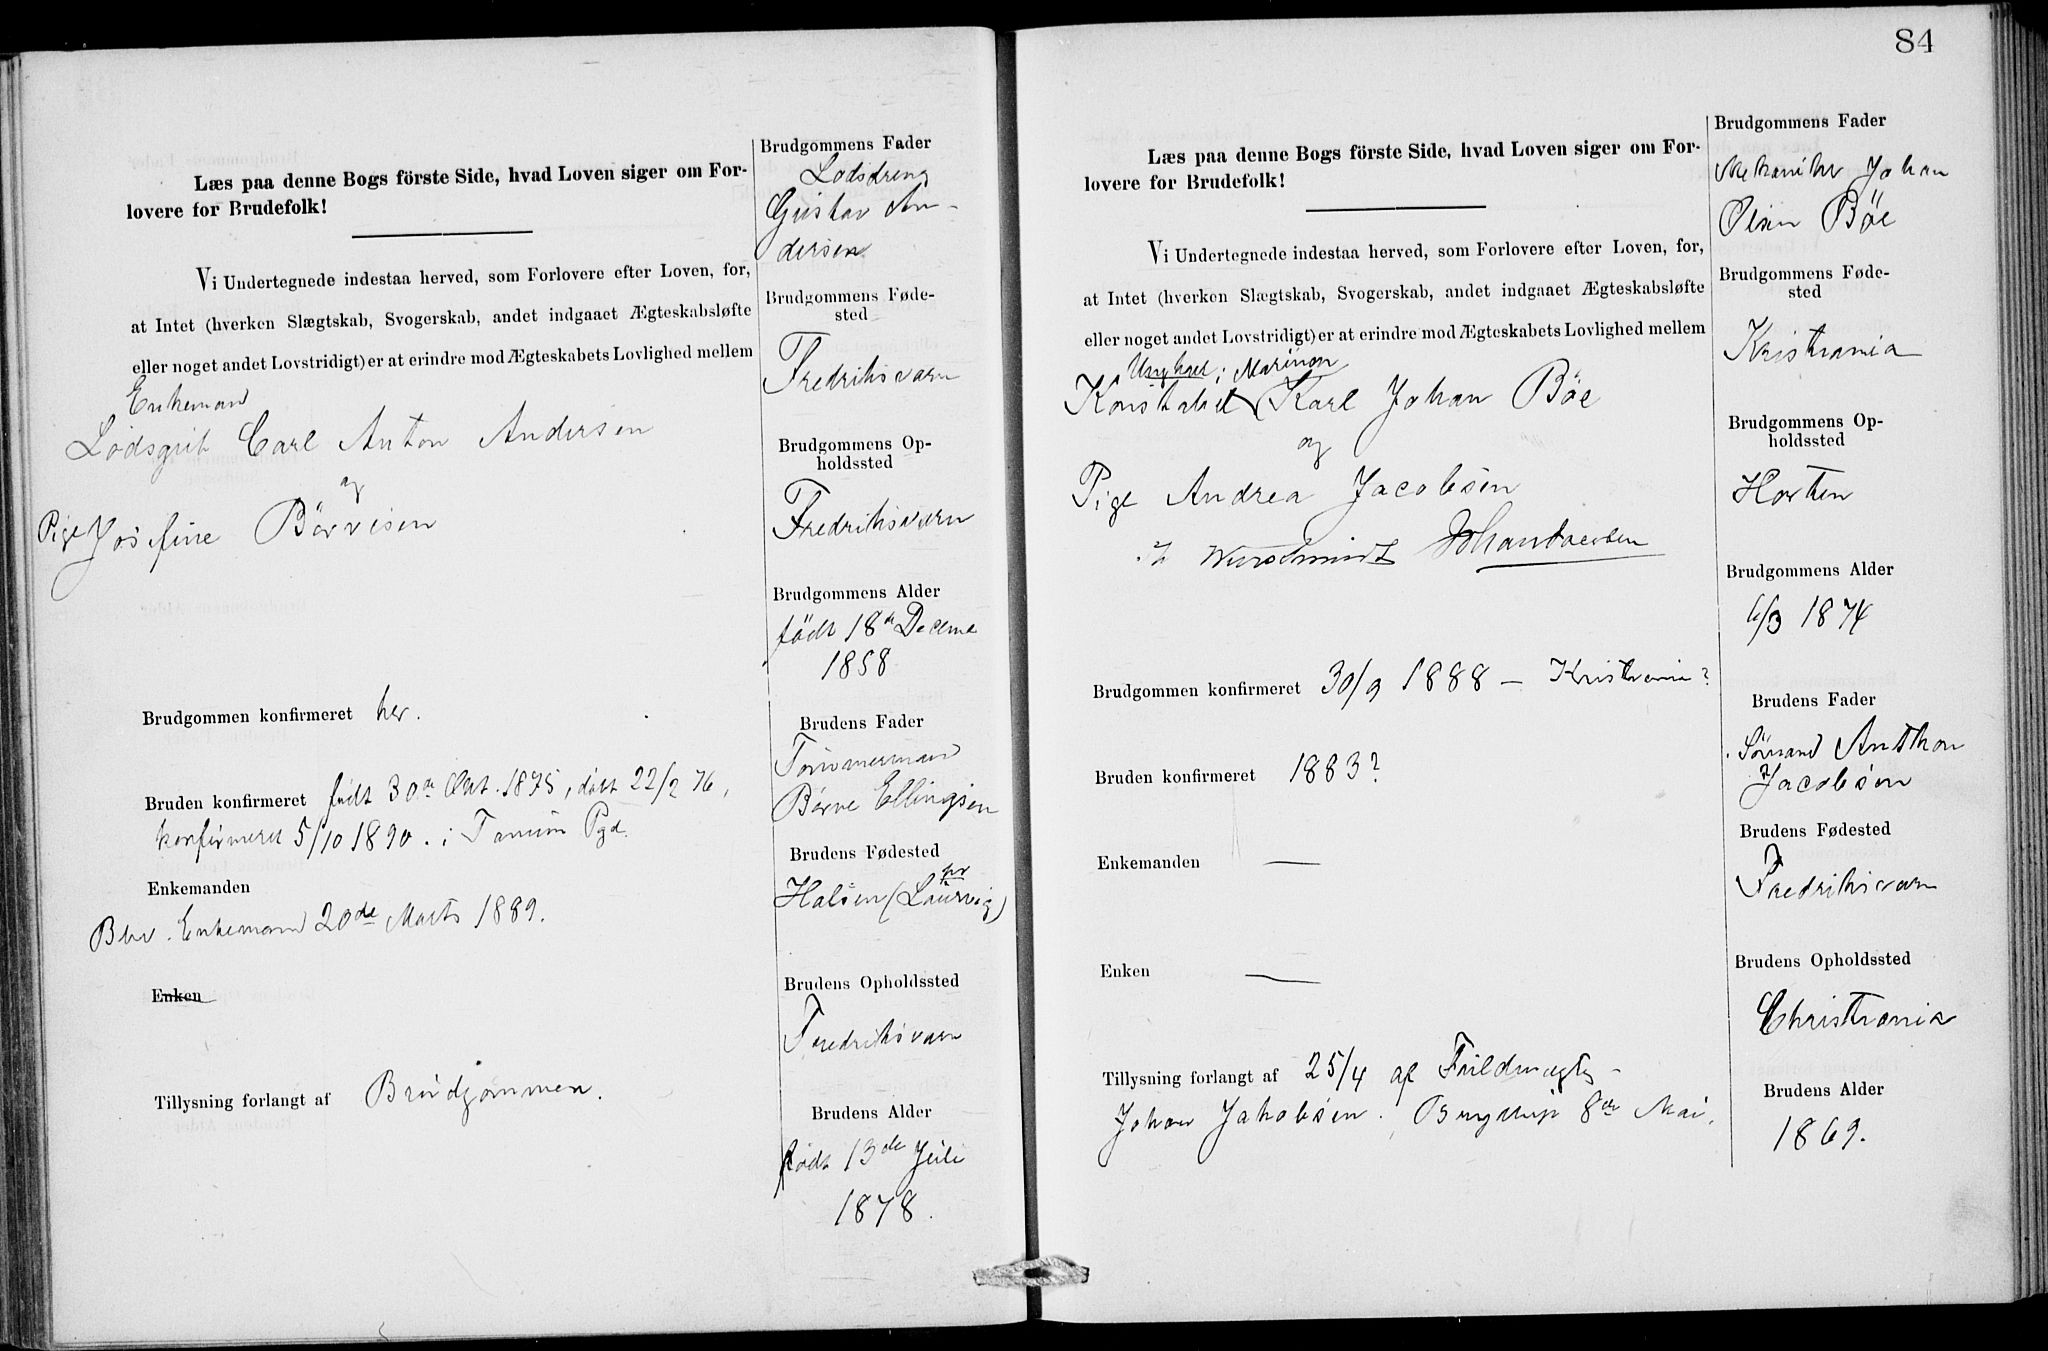 Læs paa denne Bogs förste Side, hvad Loven siger om For-
lovere for Brudefolk!
Vi Undertegnede indestaa herved, som Forlovere efter Loven, for,
at Intet (hverken Slægtskab, Svogerskab, andet indgaaet Ægteskabsløfte
eller noget andet Lovstridigt) er at erindre mod Ægteskabets Lovlighed mellem
Enkemand
Carl Anton Andersen
og
Pige Josefine Börvesen
Brudgommen konfirmeret her.
Bruden konfirmeret født 30 Okt. 1875, døbt 22/2 76,
konfirmeret 5/10 1890. i Tanum Pgd.
Enkemanden
Blev Enkemand 20de Marts 1889.
Enken
Tillysning forlangt af Brudgommen.
Brudgommens Fader
Lodsdreng
Gustav An-
dersen
Brudgommens Føde-
sted
Fredriksværn
Brudgommens Op-
holdssted
Fredriksværn
Brudgommens Alder
født 18de Decema
1858
Brudens Fader
Tömmermand
Børve Ellingsen
Brudens Fødested
Halsen (pr Laurvig)
Brudens Opholdssted
Fredriksværn
Brudens Alder
født 13de Juli
1878.
84
Læs paa denne Bogs förste Side, hvad Loven siger om For-
lovere for Brudefolk!
Vi Undertegnede indestaa herved, som Forlovere efter Loven, for,
at Intet (hverken Slægtskab, Svogerskab, andet indgaaet Ægteskabsløfte
eller noget andet Lovstridigt) er at erindre mod Ægteskabets Lovlighed mellem
Ungkarl i Marinen
Konstabel Karl Johan Böe
og
Pige Andrea Jacobsen
Johan Jacobsen
Brudgommen konfirmeret 30/9 1888 – Kristiania?
Bruden konfirmeret 1883?
Enkemanden —
Enken —
Tillysning forlangt af 25/4 af Fuldmægtig
Johan Jakobsen. Bryllup 8de Mai.
Brudgommens Fader
Mekaniker Johan
Olsen Böe
Brudgommens Føde-
sted
Kristiania
Brudgommens Op-
holdssted
Horten
Brudgommens Alder
6/3 1874
Brudens Fader
Sömand Anthon
Jacobsen
Brudens Fødested
Fredriksværn
Brudens Opholdssted
Christiania
Brudens Alder
1869.